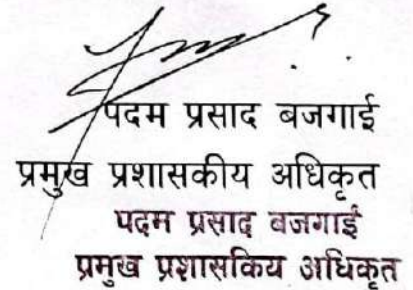 पदम प्रसाद बजगाई
प्रमुख प्रशासकीय अधिकृत
पदम प्रसाद बजगाई
प्रमुख प्रशासकिय अधिकृत